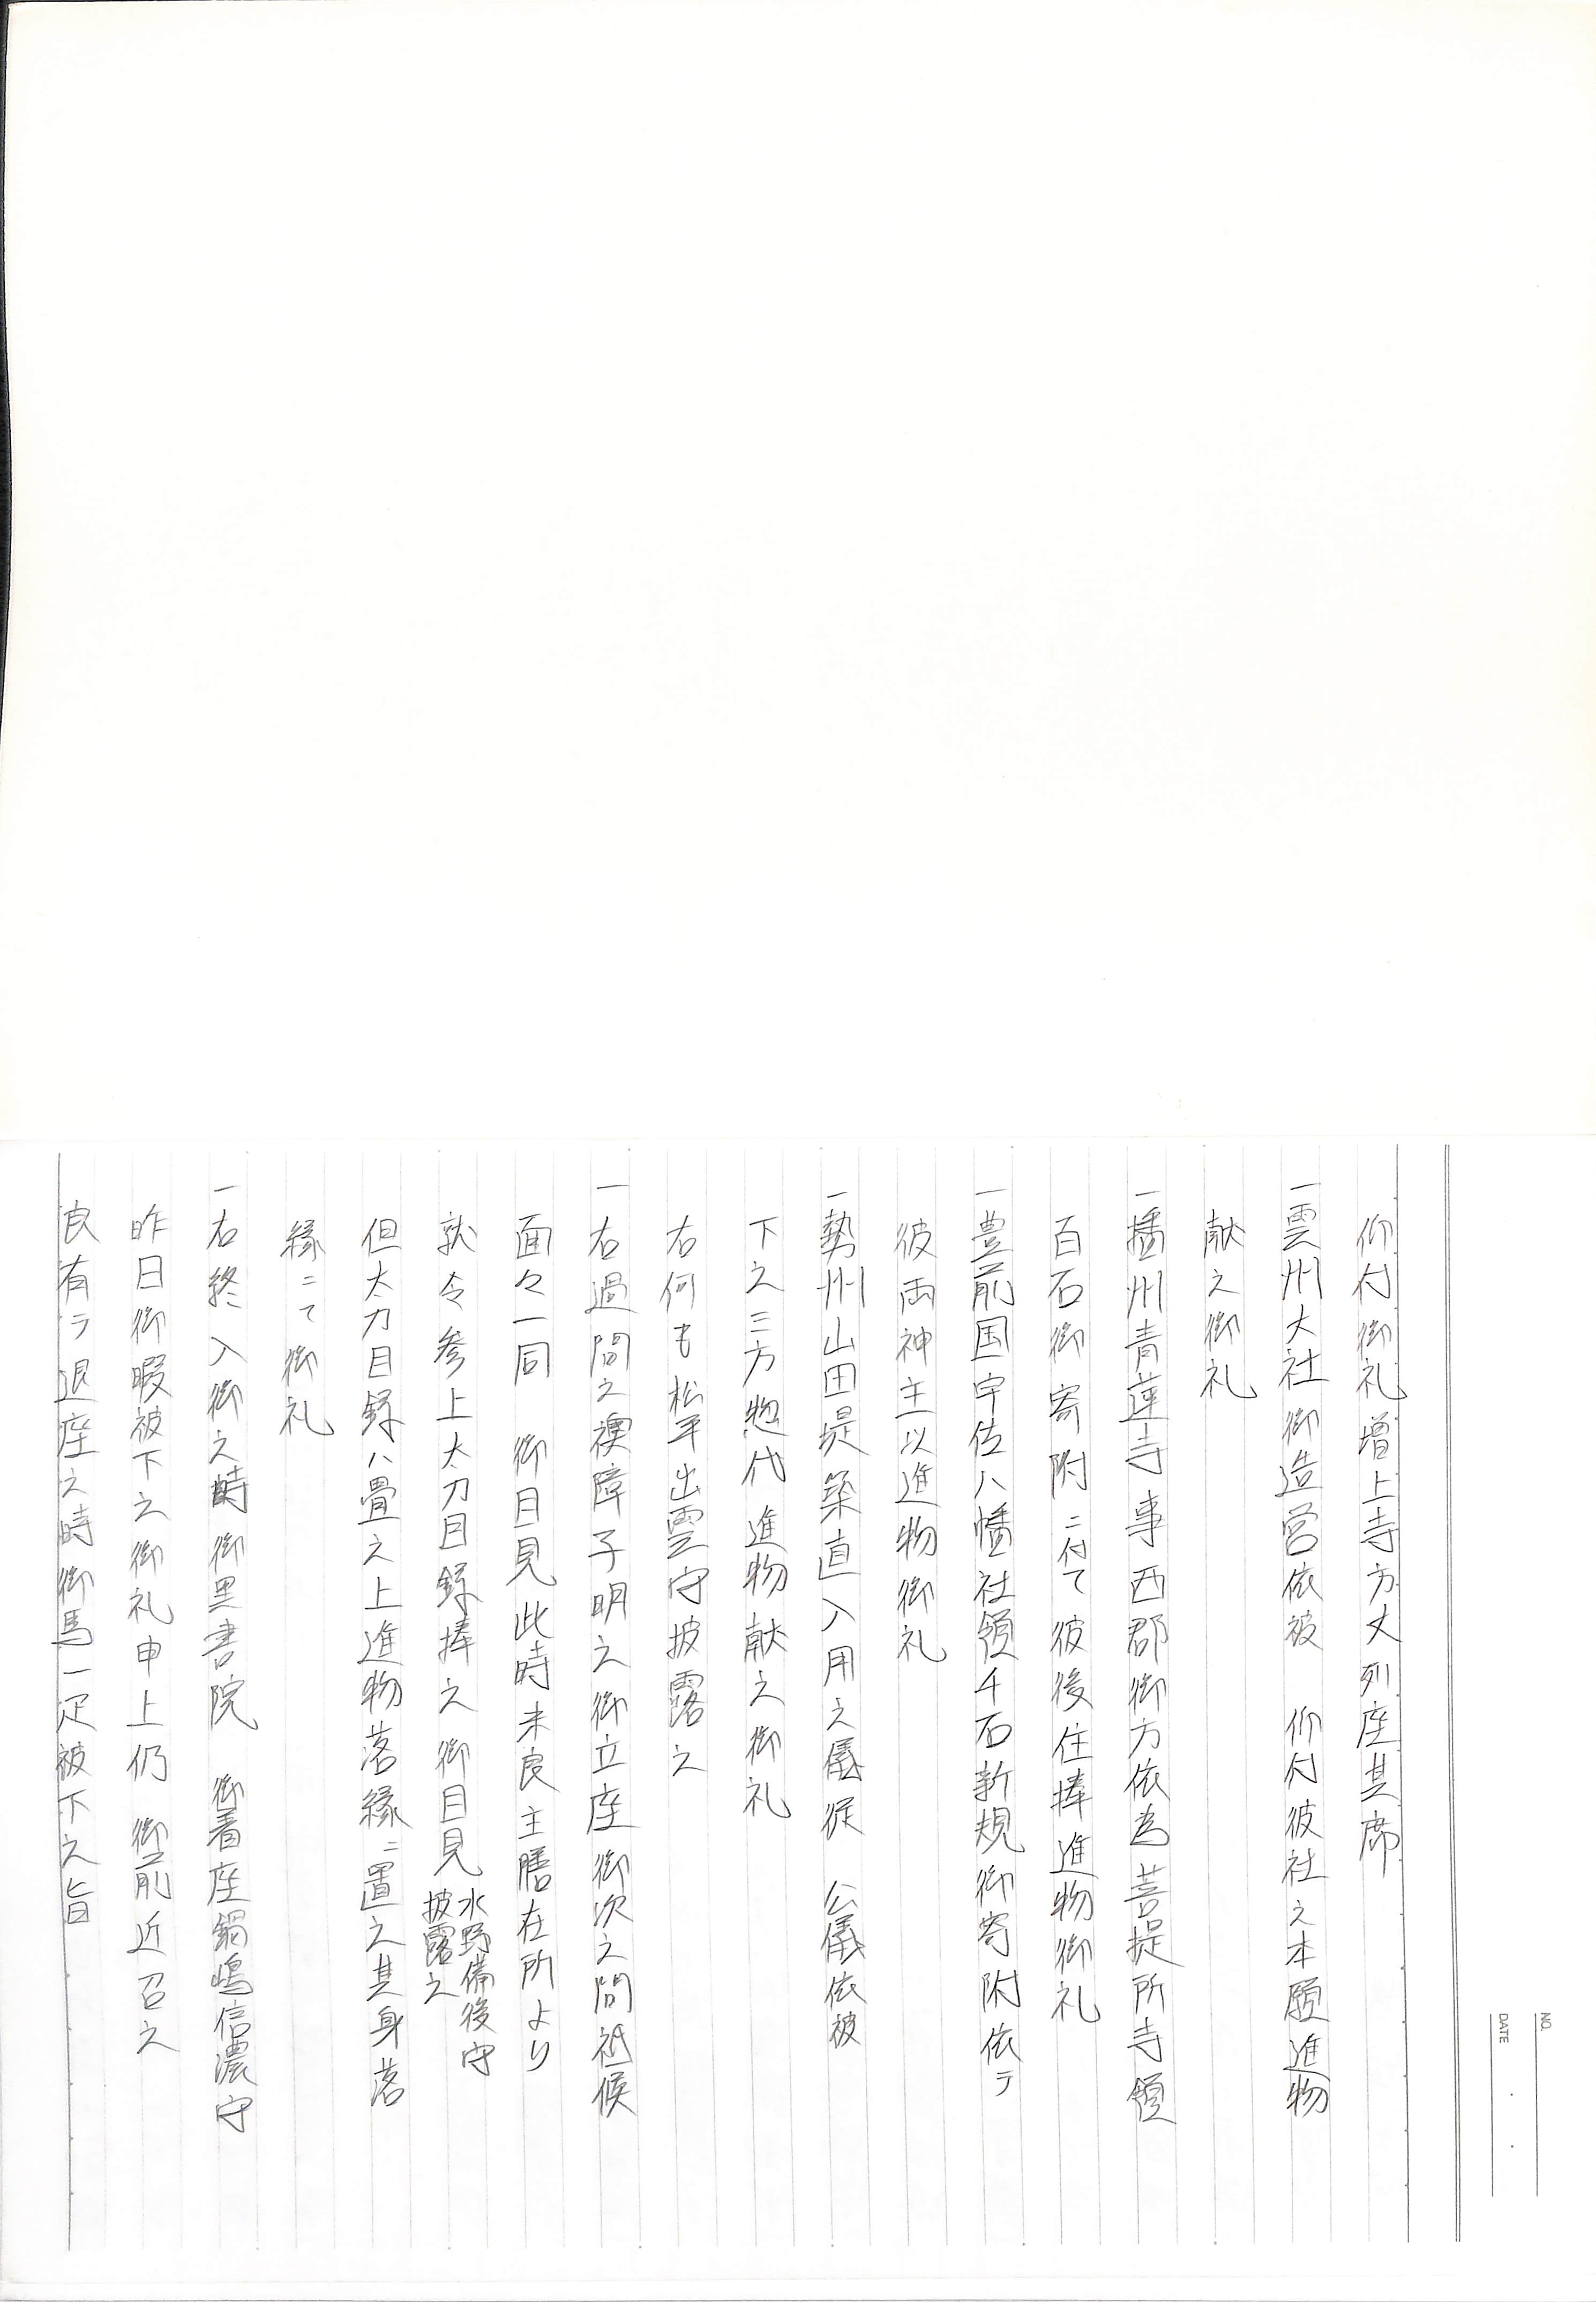 仰付御礼増上寺方丈列座其席
一雲州大社御造営依被　仰付彼社之本願進物
献之御礼
一播州青蓮寺事西郡御方依為菩提所寺領
百石御寄附ニ付て彼後住捧進物御礼
一豊前国宇佐八幡社領千石新規御寄附依テ
彼両神主以進物御礼
一勢州山田堤築直入用之儀従　公儀依被
下之三方惣代進物献之御礼
右何も松平出雲守披露之
一右過間之襖障子明之御立座御次之間祗候
面々一同　御目見此時末良主膳在所より
就令参上太刀目録捧之御目見水野備後守
披露之
但太刀目録ハ畳之上進物落縁ニ置之其身落
縁ニて御礼
一右終入御之時御黒書院　御着座鍋嶋信濃守
昨日御暇被下之御礼申上仍　御前近召之
良有ラ退座之時御馬一疋被下之旨
NO.
DATE